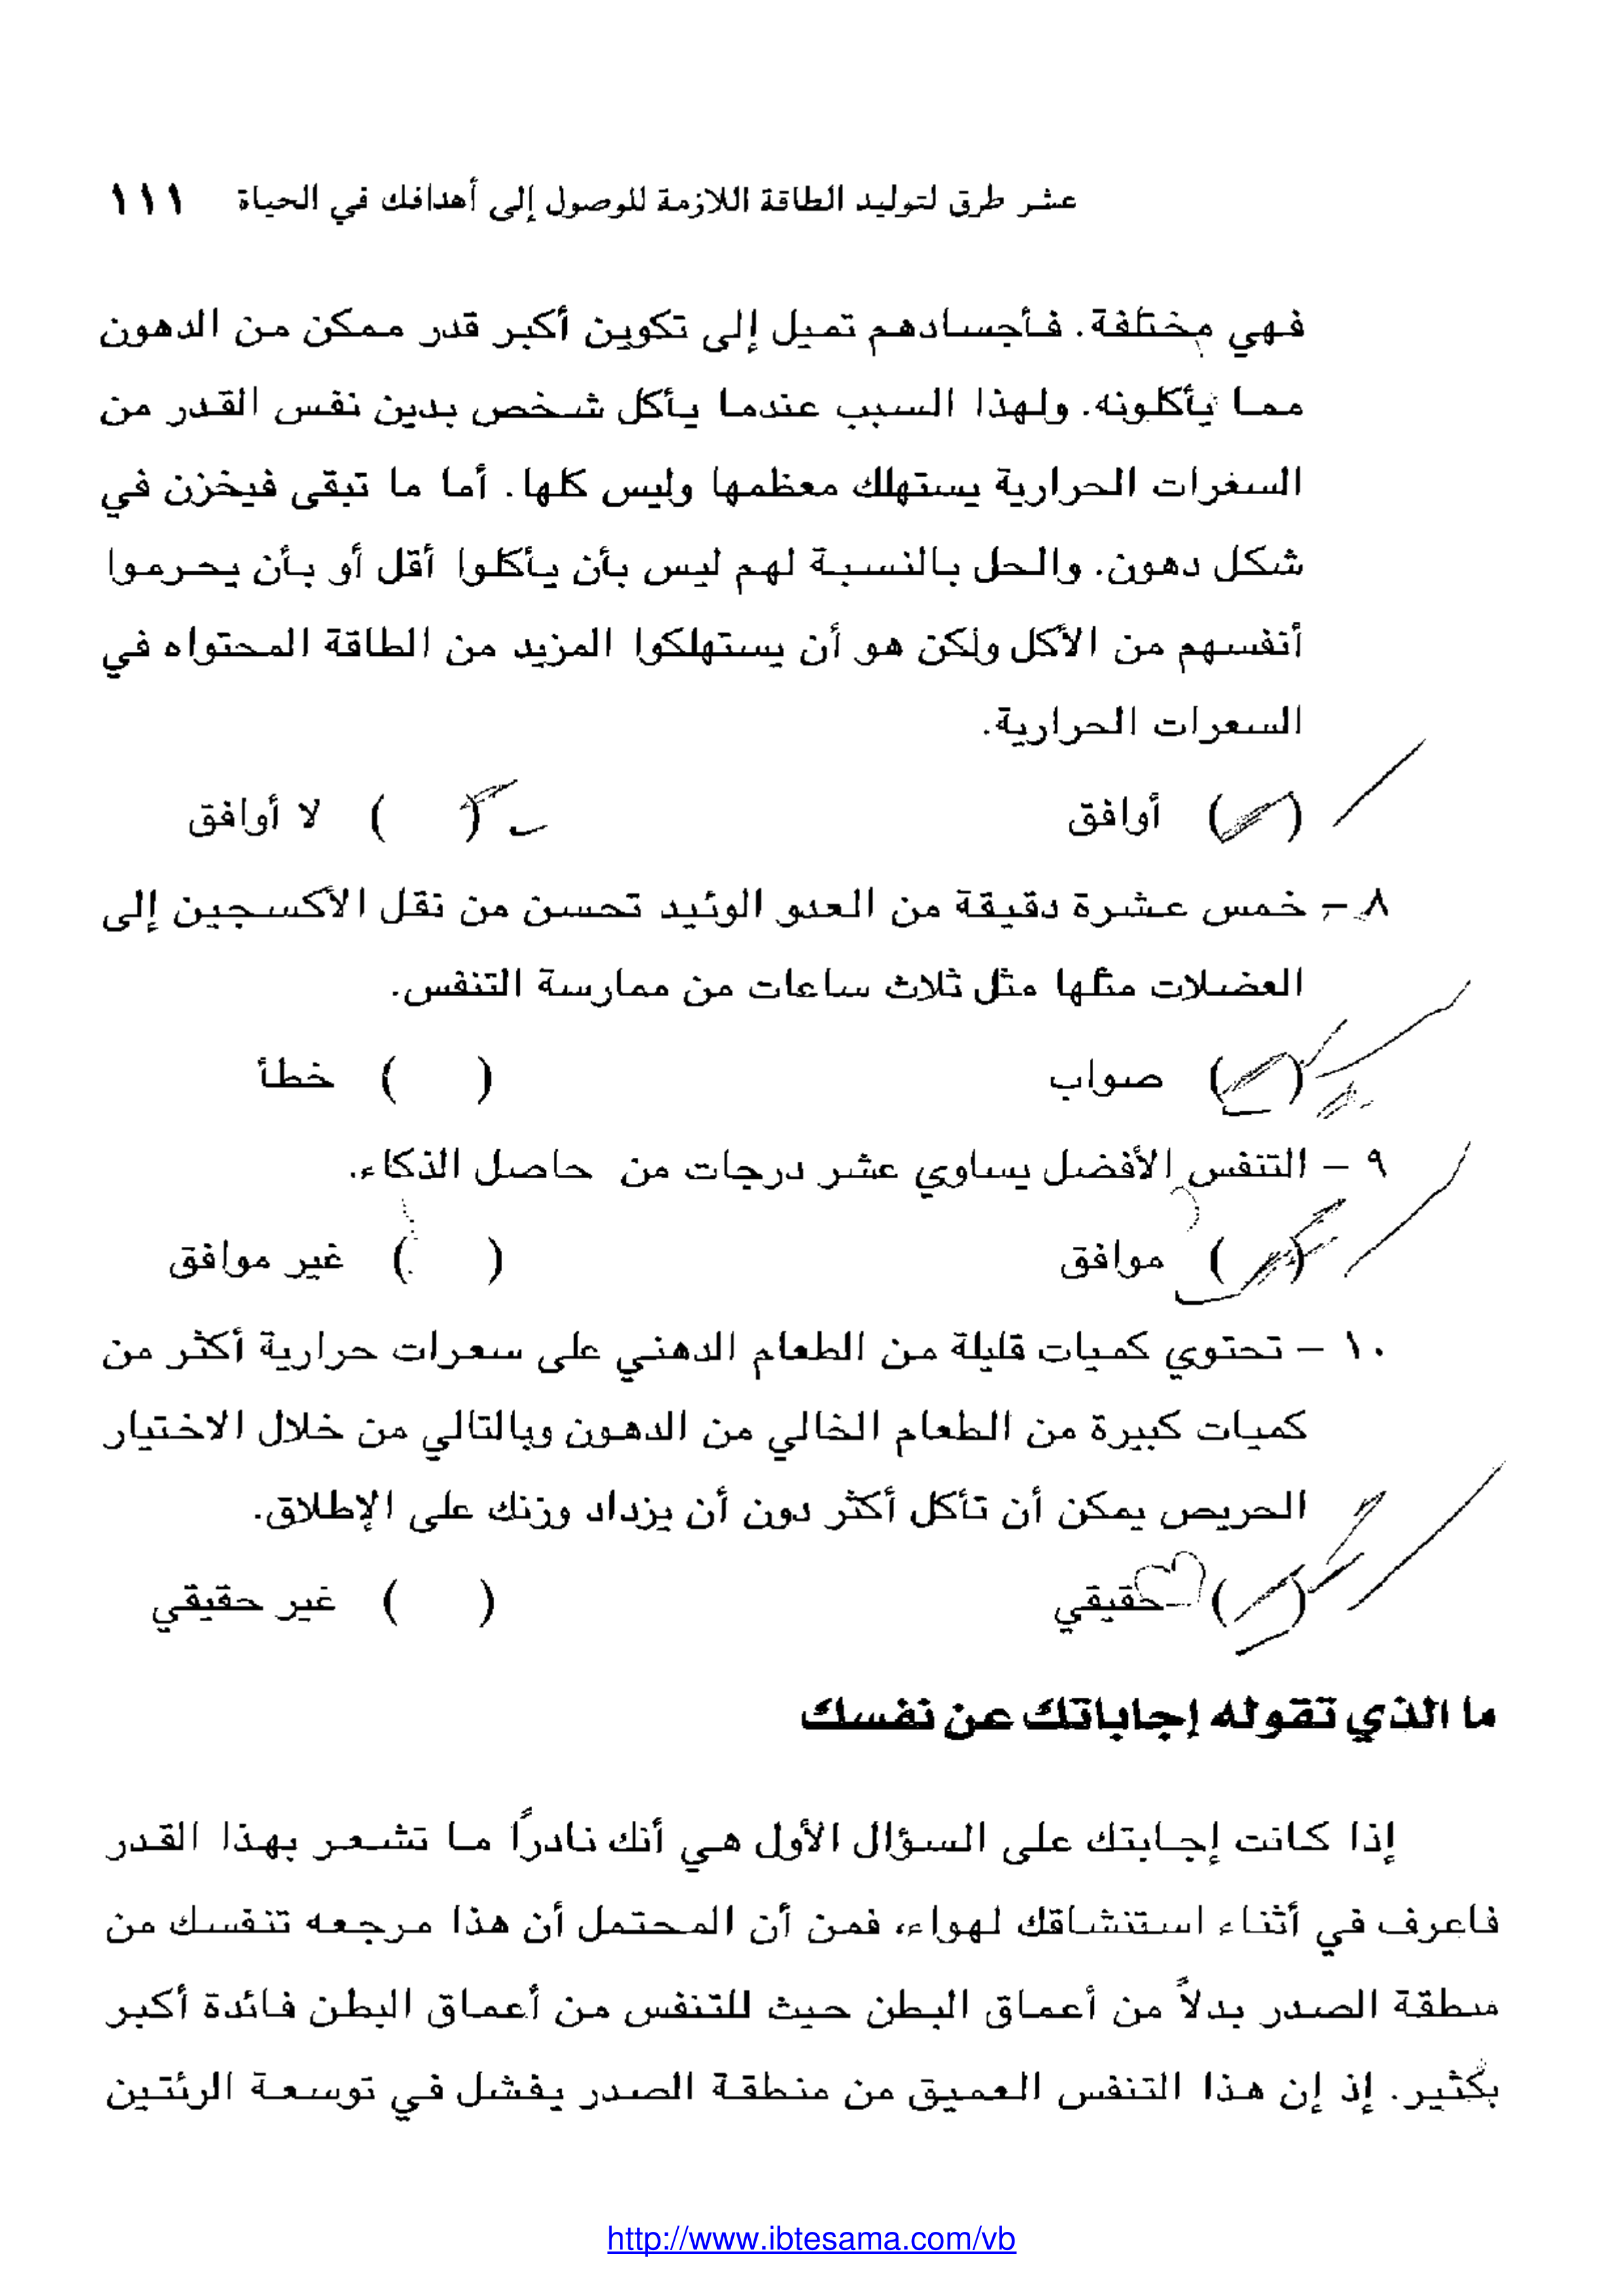 عشر طرق لتوليد الطاقة اللازمة للوصول إلى أهدافك في الحياة ١١١
فهي مختلفة. فأجسادهم تميل إلى تكوين أكبر قدر ممكن من الدهون
مما يأكلونه. ولهذا السبب عندما يأكل شخص بدين نفس القدر من
السغرات الحرارية يستهلك معظمها وليس كلها. أما ما تبقى فيخزن في
شكل دهون. والحل بالنسبة لهم ليس بأن يأكلوا أقل أو بأن يحرموا
أنفسهم من الأكل ولكن هو أن يستهلكوا المزيد من الطاقة المحتواه في
السعرات الحرارية.
( ) أوافق ( ) لا أوافق
٨ – خمس عشرة دقيقة من العدو الوئيد تحسن من نقل الأكسجين إلى
العضلات مثلها مثل ثلاث ساعات من ممارسة التنفس.
( ) صواب ( ) خطأ
٩ – التنفس الأفضل يساوي عشر درجات من حاصل الذكاء.
( ) موافق ( ) غير موافق
١٠ – تحتوي كميات قليلة من الطعام الدهني على سعرات حرارية أكثر من
كميات كبيرة من الطعام الخالي من الدهون وبالتالي من خلال الاختيار
الحريص يمكن أن تأكل أكثر دون أن يزداد وزنك على الإطلاق.
( ) حقيقي ( ) غير حقيقي
ما الذي تقوله إجاباتك عن نفسك
إذا كانت إجابتك على السؤال الأول هي أنك نادراً ما تشعر بهذا القدر
فاعرف في أثناء استنشاقك لهواء، فمن أن المحتمل أن هذا مرجعه تنفسك من
منطقة الصدر بدلاً من أعماق البطن حيث للتنفس من أعماق البطن فائدة أكبر
بكثير. إذ إن هذا التنفس العميق من منطقة الصدر يفشل في توسعة الرئتين
http://www.ibtesama.com/vb